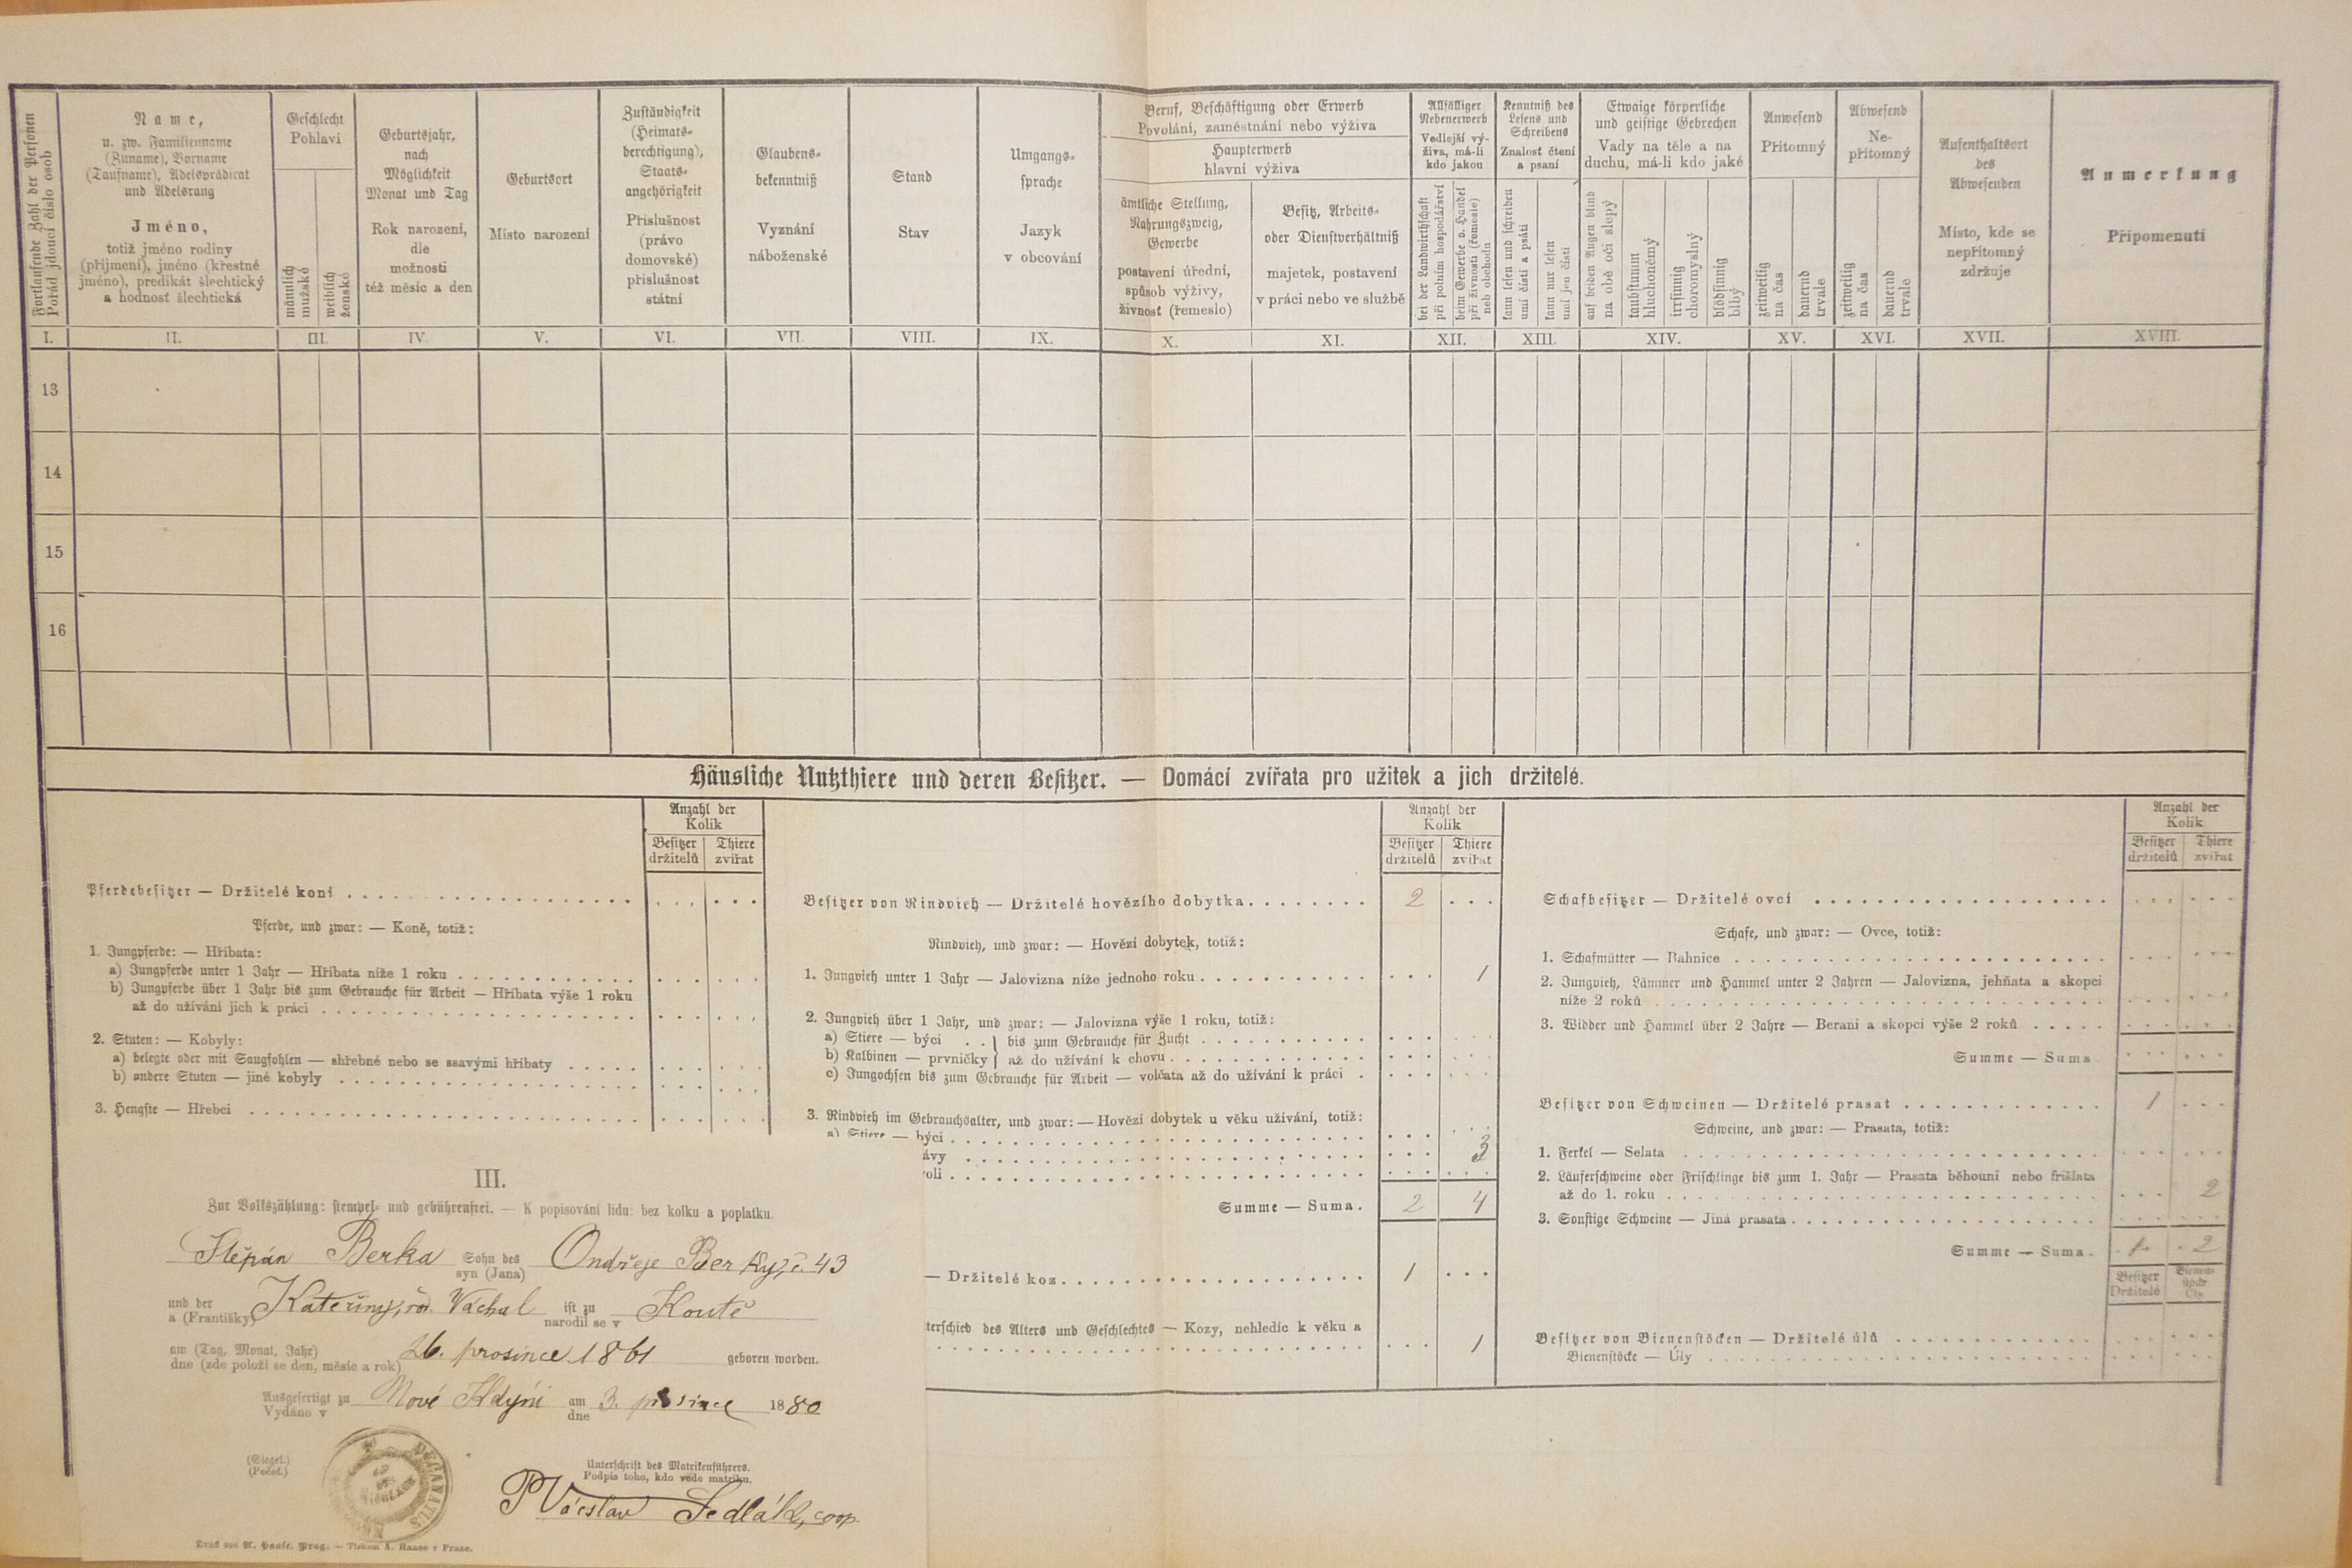 Fortlaufende Zahl der Personen
Pořád jdoucí číslo osob
Name,
u. zw. Familienname
(Zuname), Vorname
(Taufname), Adelsprädicat
und Adelsrang
Jméno,
totiž jméno rodiny
(příjmení), jméno (křestné
jméno), predikát šlechtický
a hodnost šlechtická
Geschlecht
Pohlaví
männlich
mužské
weiblich
ženské
Geburtsjahr,
nach
Möglichkeit
Monat und Tag
Rok narození,
dle
možnosti
též měsíc a den
Geburtsort
Místo narození
Zuständigkeit
(Heimats-
berechtigung),
Staats-
angehörigkeit
Příslušnost
(právo
domovské)
příslušnost
státní
Glaubens-
bekenntniß
Vyznání
náboženské
Stand
Stav
Umgangs-
sprache
Jazyk
v obcování
Beruf, Beschäftigung oder Erwerb
Povolání, zaměstnání nebo výživa
Haupterwerb
hlavní výživa
ämtliche Stellung,
Nahrungszweig,
Gewerbe
postavení úřední,
spůsob výživy,
živnost (řemeslo)
Besitz, Arbeits-
oder Dienstverhältniß
majetek, postavení
v práci nebo ve službě
Allfälliger
Nebenerwerb
Vedlejší vý-
živa, má-li
kdo jakou
bei der Landwirthschaft
při polním hospodářství
beim Gewerbe o. Handel
při živnosti (řemesle)
neb obchodu
Kenntniß des
Lesens und
Schreibens
Znalost čtení
a psaní
kann lesen und schreiben
umí čísti a psáti
kann nur lesen
umí jen čísti
Etwaige körperliche
und geistige Gebrechen
Vady na těle a na
duchu, má-li kdo jaké
auf beiden Augen blind
na obě oči slepý
taubstumm
hluchoněmý
irrsinnig
choromyslný
blödsinnig
blbý
Anwesend
Přítomný
zeitweilig
na čas
dauernd
trvale
Abwesend
Ne-
přítomný
zeitweilig
na čas
dauernd
trvale
Aufenthaltsort
des
Abwesenden
Místo, kde se
nepřítomný
zdržuje
Anmerkung
Připomenutí
I. II. III. IV. V. VI. VII. VIII. IX. X. XI. XII. XIII. XIV. XV. XVI. XVII. XVIII.
13
14
15
16
Häusliche Nutzthiere und deren Besitzer. — Domácí zvířata pro užitek a jich držitelé.
Anzahl der
Kolik
Besitzer Thiere
držitelů zvířat
Pferdebesitzer — Držitelé koní
Pferde, und zwar: — Koně, totiž:
1. Jungpferde: — Hříbata:
a) Jungpferde unter 1 Jahr — Hříbata níže 1 roku
b) Jungpferde über 1 Jahr bis zum Gebrauche für Arbeit — Hříbata výše 1 roku
až do užívání jich k práci
2. Stuten: — Kobyly:
a) belegte oder mit Saugfohlen — shřebné nebo se ssavými hříbaty
b) andere Stuten — jiné kobyly
3. Hengste — Hřebci
Anzahl der
Kolik
Besitzer Thiere
držitelů zvířat
Besitzer von Rindvieh — Držitelé hovězího dobytka 2
Rindvieh, und zwar: — Hovězí dobytek, totiž:
1. Jungvieh unter 1 Jahr — Jalovizna níže jednoho roku 1
2. Jungvieh über 1 Jahr, und zwar: — Jalovizna výše 1 roku, totiž:
a) Stiere — býci } bis zum Gebrauche für Zucht
b) Kalbinen — prvničky } až do užívání k chovu
c) Jungochsen bis zum Gebrauche für Arbeit — volčata až do užívání k práci
3. Rindvieh im Gebrauchsalter, und zwar: — Hovězí dobytek u věku užívání, totiž:
a) Stiere — býci
ávy 3
voli
Summe — Suma. 2 4
— Držitelé koz 1
terschied des Alters und Geschlechtes — Kozy, nehledíc k věku a
1
Anzahl der
Kolik
Besitzer Thiere
držitelů zvířat
Schafbesitzer — Držitelé ovcí
Schafe, und zwar: — Ovce, totiž:
1. Schafmütter — Bahnice
2. Jungvieh, Lämmer und Hammel unter 2 Jahren — Jalovizna, jehňata a skopci
níže 2 roků
3. Widder und Hammel über 2 Jahre — Berani a skopci výše 2 roků
Summe — Suma.
Besitzer von Schweinen — Držitelé prasat 1
Schweine, und zwar: — Prasata, totiž:
1. Ferkel — Selata
2. Läuferschweine oder Frischlinge bis zum 1. Jahr — Prasata běhouni nebo frišlata
až do 1. roku 2
3. Sonstige Schweine — Jiná prasata
Summe — Suma. 1 2
Besitzer Bienen-
stöcke
Držitelé Úly
Besitzer von Bienenstöcken — Držitelé úlů
Bienenstöcke — Úly
III.
Zur Volkszählung: stempel- und gebührenfrei. — K popisování lidu: bez kolku a poplatku.
Štěpán Berka Sohn des Ondřeje Berky, č. 43
syn (Jana)
und der Kateřiny, roz. Váchal ist zu Koutě
a (Františky) narodil se v
am (Tag, Monat, Jahr) 26. prosince 1861 geboren worden.
dne (zde položí se den, měsíc a rok)
Ausgefertigt zu Nové Kdyni am 3. prosince 1880
Vydáno v dne
(Siegel.)
(Pečeť.)
Unterschrift des Matrikenführers.
Podpis toho, kdo vede matriku.
P Václav Sedlák, coop.
Druck von A. Haase, Prag. — Tiskem A. Haase v Praze.